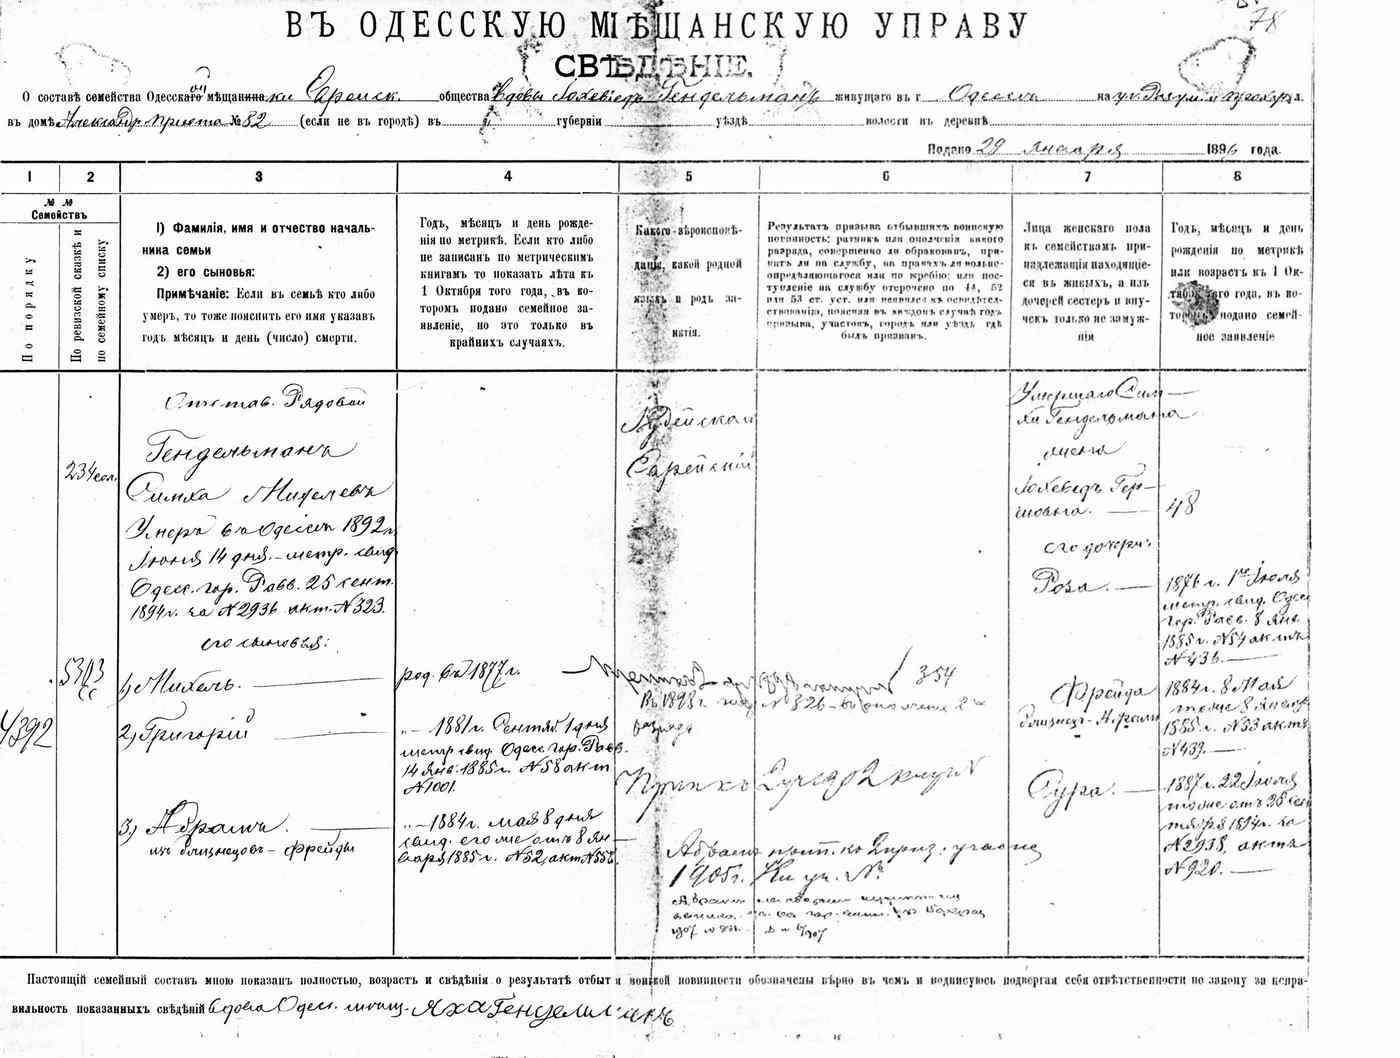 78
ВЪ ОДЕССКУЮ МѢЩАНСКУЮ УПРАВУ
СВѢДѢНІЕ.
О составѣ семейства Одесскаго мѣщанинаки Еврейск. общества Вдовы Іохеведъ Гендельманъ живущаго въ г Одессѣ на ул.
въ домѣ № 82 (если не въ городѣ) въ губерніи уѣздѣ волости въ деревнѣ
Подано 29 января 1896 года.
1 2 3 4 5 6 7 8
№ № Семействъ
По порядку
По ревизской сказкѣ и по семейному списку
1) Фамилія, имя и отчество началь-
ника семьи
2) его сыновья:
Примѣчаніе: Если въ семьѣ кто либо
умеръ, то тоже пояснить его имя указавъ
годъ мѣсяцъ и день (число) смерти.
Годъ, мѣсяцъ и день рожде-
нія по метрикѣ. Если кто либо
не записанъ по метрическимъ
книгамъ то показать лѣта къ
1 Октября того года, въ ко-
торомъ подано семейное за-
явленіе, но это только въ
крайнихъ случаяхъ.
Какого вѣроисповѣ-
данія, какой родной
языкъ и родъ за-
нятія.
Результатъ призыва отбывшихъ воинскую
повинность: ратникъ или ополченія какого
разряда, совершенно ли обракованъ, при-
нятъ ли на службу, на правахъ ли вольно-
опредѣляющагося или по жребію; или пос-
тупленіе на службу отсрочено по 44, 52
или 53 ст. уст. или неявился къ освидѣтел-
ствованію, поясняя въ каждомъ случаѣ годъ
призыва, участокъ, городъ или уѣздъ гдѣ
былъ призванъ.
Лица женскаго пола
къ семействамъ при-
надлежащія находящіе-
ся въ живыхъ, а изъ
дочерей сестеръ и вну-
чекъ только не замуж-
нія
Годъ, мѣсяцъ и день
рожденія по метрикѣ
или возрастъ къ 1 Ок-
тября того года, въ ко-
торомъ подано семей-
ное заявленіе
234
Отстав. Рядовой
Гендельманъ
Симха Михелевъ
Умеръ въ Одессѣ 1892 г.
Іюня 14 дня. – метр. свид.
Одес. гор. Равв. 25 сент.
1894 г. за № 2936 акт. № 323.
его сыновья:
5303
4392
1) Михель.
род. въ 1877 г.
354
2) Григорій
"– 1881 г. Сентяб. 1 дня
метр свид. Одес. гор. Равв.
14 Янв. 1885 г. № 58 акт
№ 1001.
3) Абрамъ.
изъ близнецовъ – Фрейды
"– 1884 г. мая 8 дня
свид. его же отъ 8 Ян-
варя 1885 г. № 52, акт № 556.
Іудейской
Еврейскій
Въ 1898 г. № 326
разряда
1905 г.
Умершаго Сим-
хи Гендельмана
жена
Іохеведъ Гер-
шовна.
48
его дочери:
Роза.
1876 г. 1го Іюля
метр. свид. Одес
гор. Равв. 8 Янв.
1885 г. № 54 актъ
№ 436.
Фрейда
близнец – Абрама
1884 г. 8 Мая
тоже 8 Января
1885 г. № 53 актъ
№ 439.
Сура.
1887 г. 22 Іюля
тоже отъ 26 сен
тября 1894 г. за
№ 2938, актъ
№ 920.
Настоящій семейный составъ мною показанъ полностью, возрастъ и свѣдѣнія о результатѣ отбытія воинской повинности обозначены вѣрно въ чемъ и подписуюсь подвергая себя отвѣтственности по закону за неправильность показанныхъ свѣдѣній вдова Одесс. мѣщ. Яха Гендельманъ